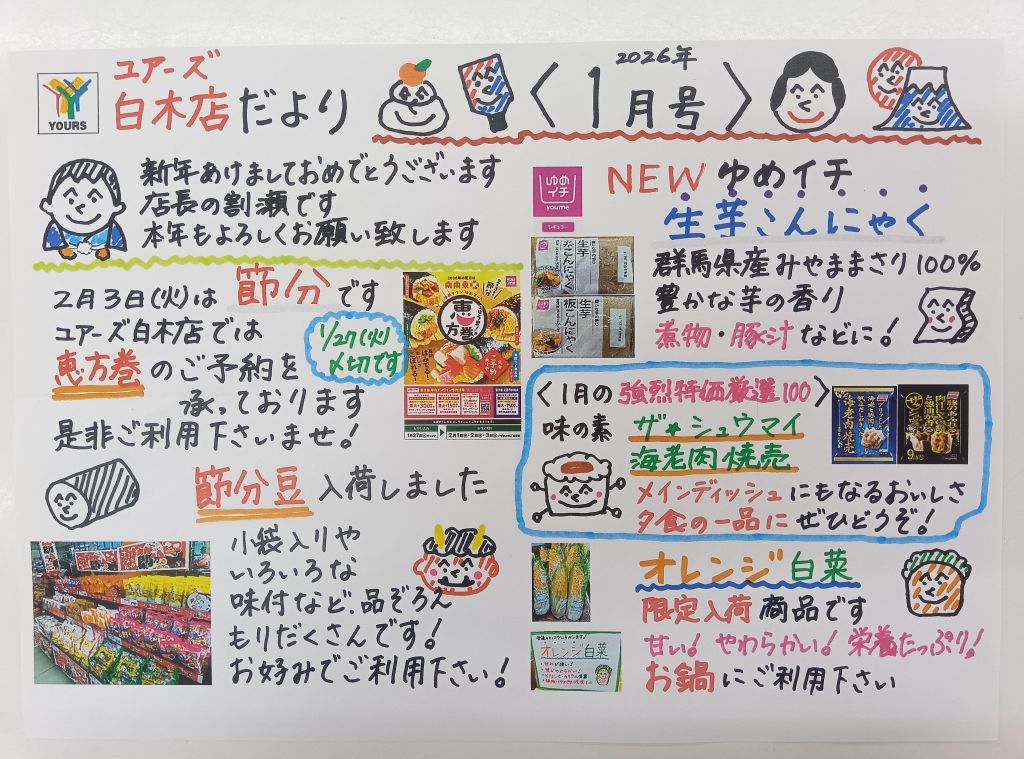 YOURS
ユアーズ
白木店だより
2026年
〈1月号〉
新年あけましておめでとうございます
店長の割瀬です
本年もよろしくお願い致します
2月3日(火)は 節分です
ユアーズ白木店では
恵方巻のご予約を
承っております
是非ご利用下さいませ!
1/27(火)
〆切です
恵方巻
節分豆 入荷しました
小袋入りや
いろいろな
味付など、品ぞろえ
もりだくさんです!
お好みでご利用下さい!
NEW ゆめイチ
生芋こんにゃく
ゆめイチ
youme
レギュラー
生芋
糸こんにゃく
生芋
板こんにゃく
群馬県産みやままさり100%
豊かな芋の香り
煮物・豚汁などに!
〈1月の強烈特価厳選100〉
味の素 ザ★シュウマイ
海老肉焼売
海老肉焼売
メインディッシュにもなるおいしさ
夕食の一品にぜひどうぞ!
オレンジ白菜
限定入荷商品です
甘い! やわらかい! 栄養たっぷり!
お鍋にご利用下さい
オレンジ白菜